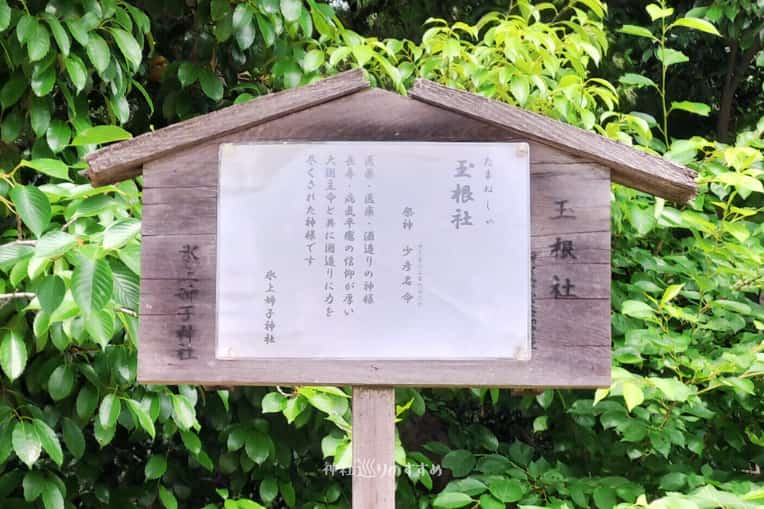 玉根社
たまねしゃ
玉根社
祭神 少彦名命
医薬・医療・酒造りの神様
長寿・病気平癒の信仰が厚い
大国主命と共に国造りに力を
尽くされた神様です
氷上姉子神社
氷上姉子神社
神社巡りのすすめ